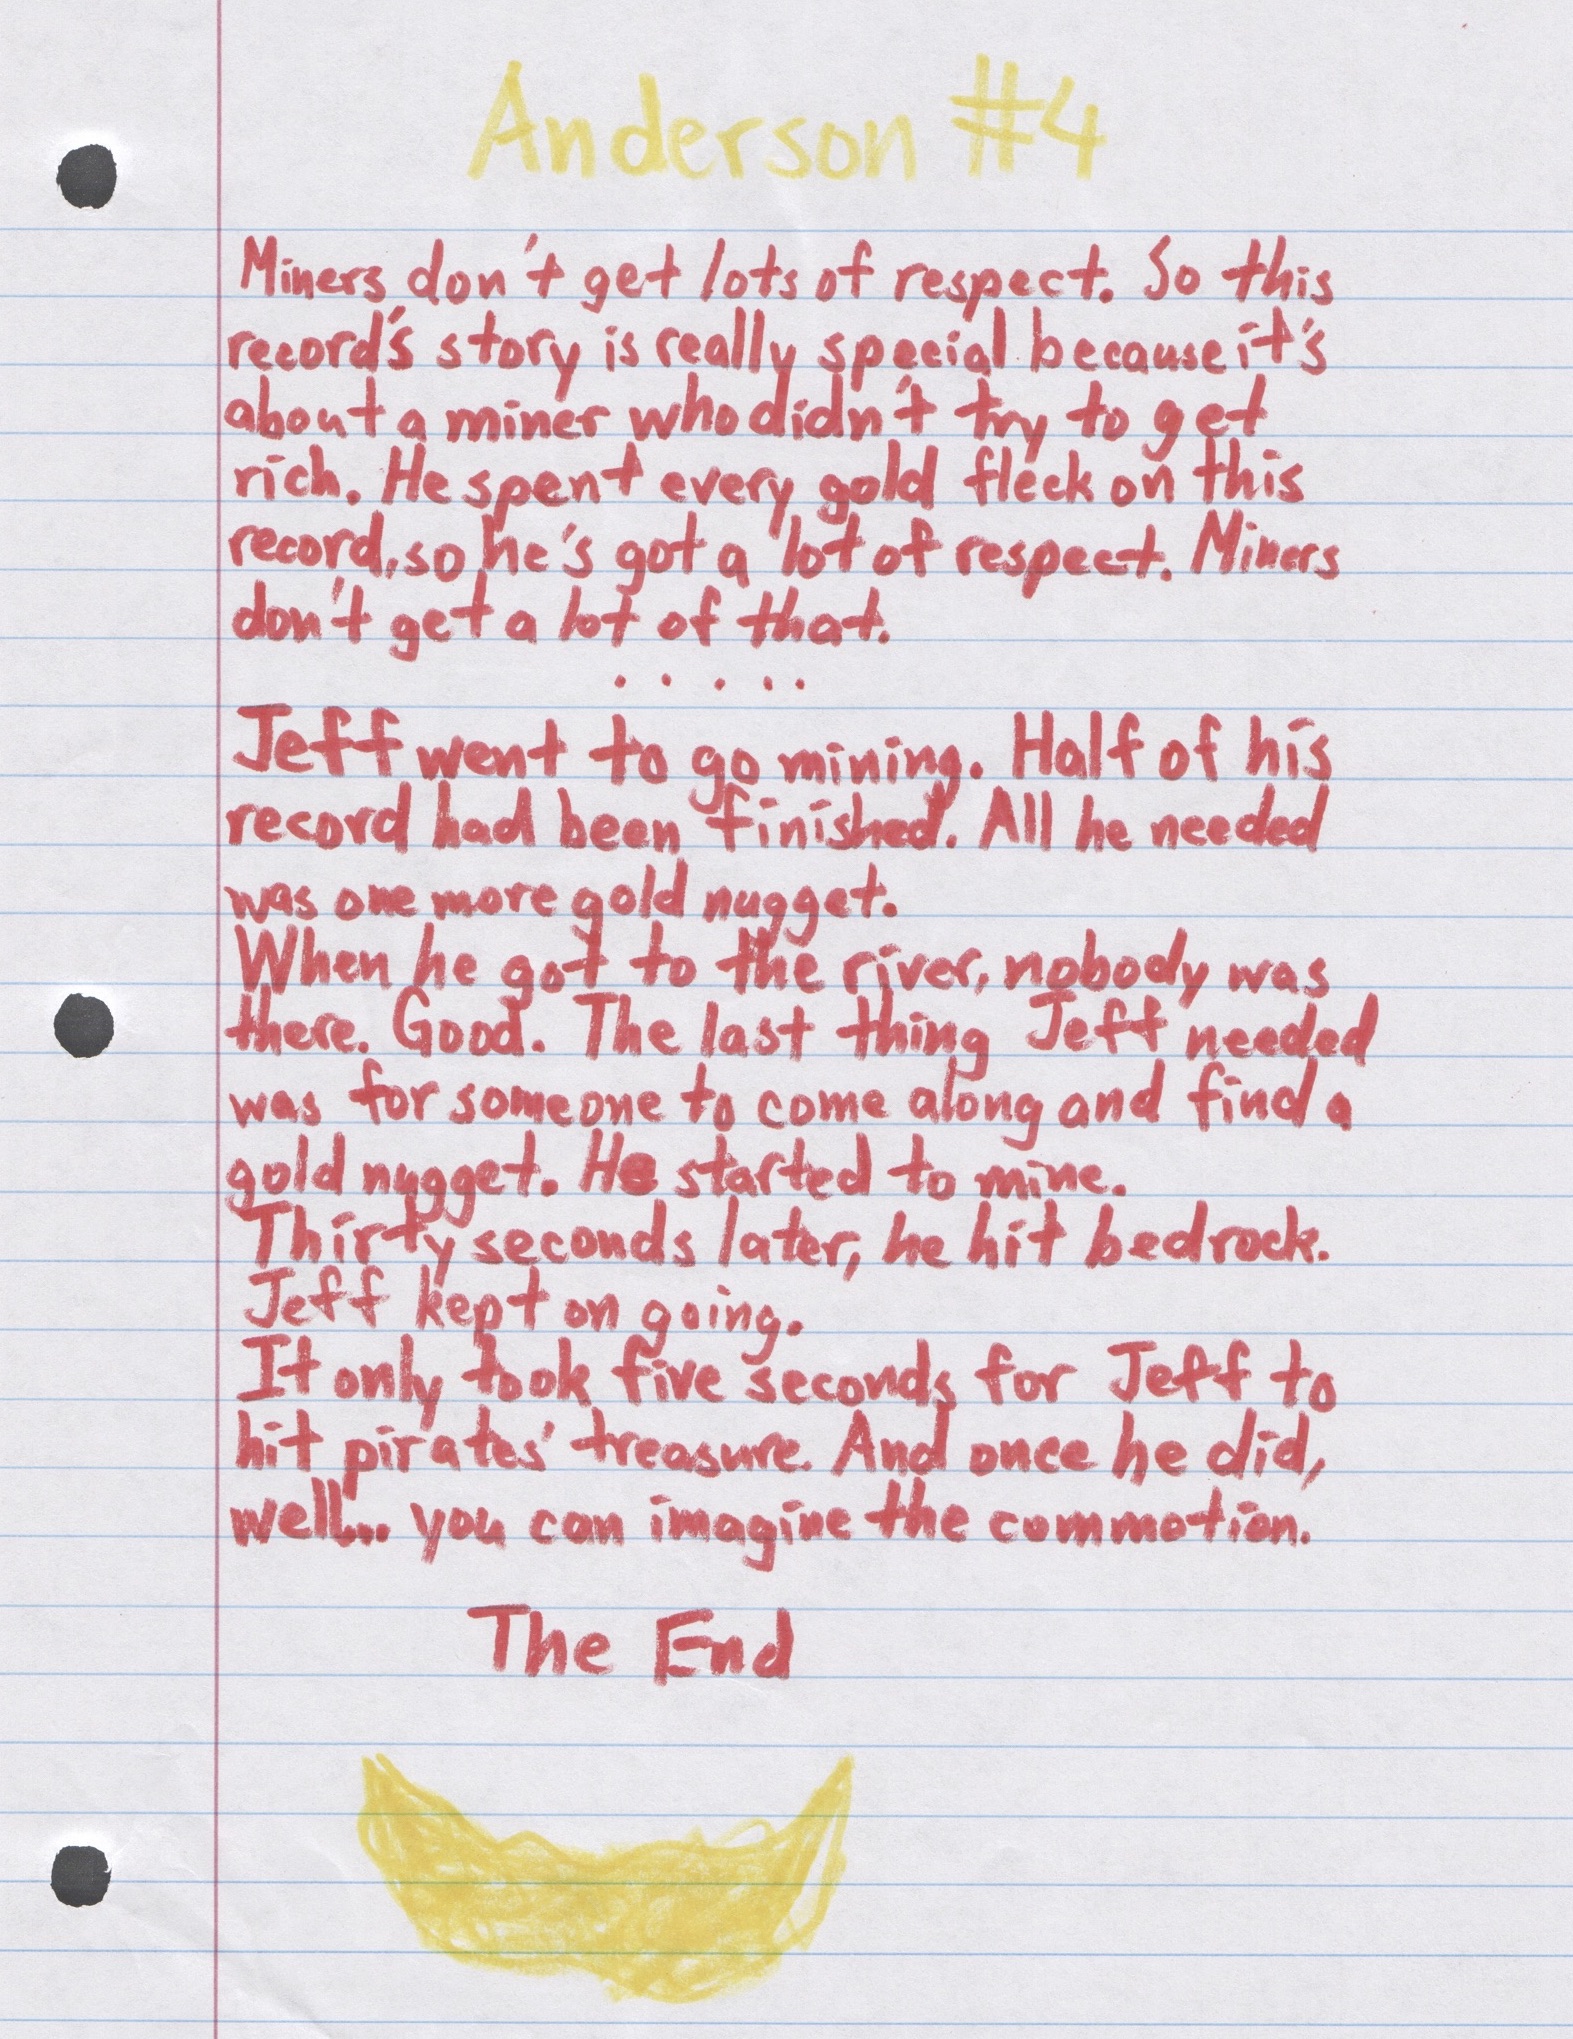 Anderson #4
Miners don't get lots of respect. So this
record's story is really special because it's
about a miner who didn't try to get
rich. He spent every gold fleck on this
record, so he's got a lot of respect. Miners
don't get a lot of that.
.....
Jeff went to go mining. Half of his
record had been finished. All he needed
was one more gold nugget.
When he got to the river, nobody was
there. Good. The last thing Jeff needed
was for someone to come along and find a
gold nugget. He started to mine.
Thirty seconds later, he hit bedrock.
Jeff kept on going.
It only took five seconds for Jeff to
hit pirates' treasure. And once he did,
well... you can imagine the commotion.
The End